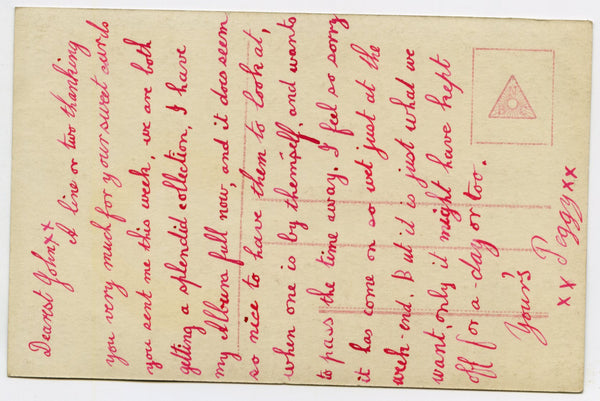 Dearest John xx
A line or two thanking
you very much for your sweet cards
you sent me this week, we are both
getting a splendid collection, I have
my Album full now, and it does seem
so nice to have them to look at,
when one is by themself, and wants
to pass the time away. I feel so sorry
it has come on so wet just at the
week-end. But it is just what we
want, only it might have kept
off for a day or too.
Your's
xx Peggy xx